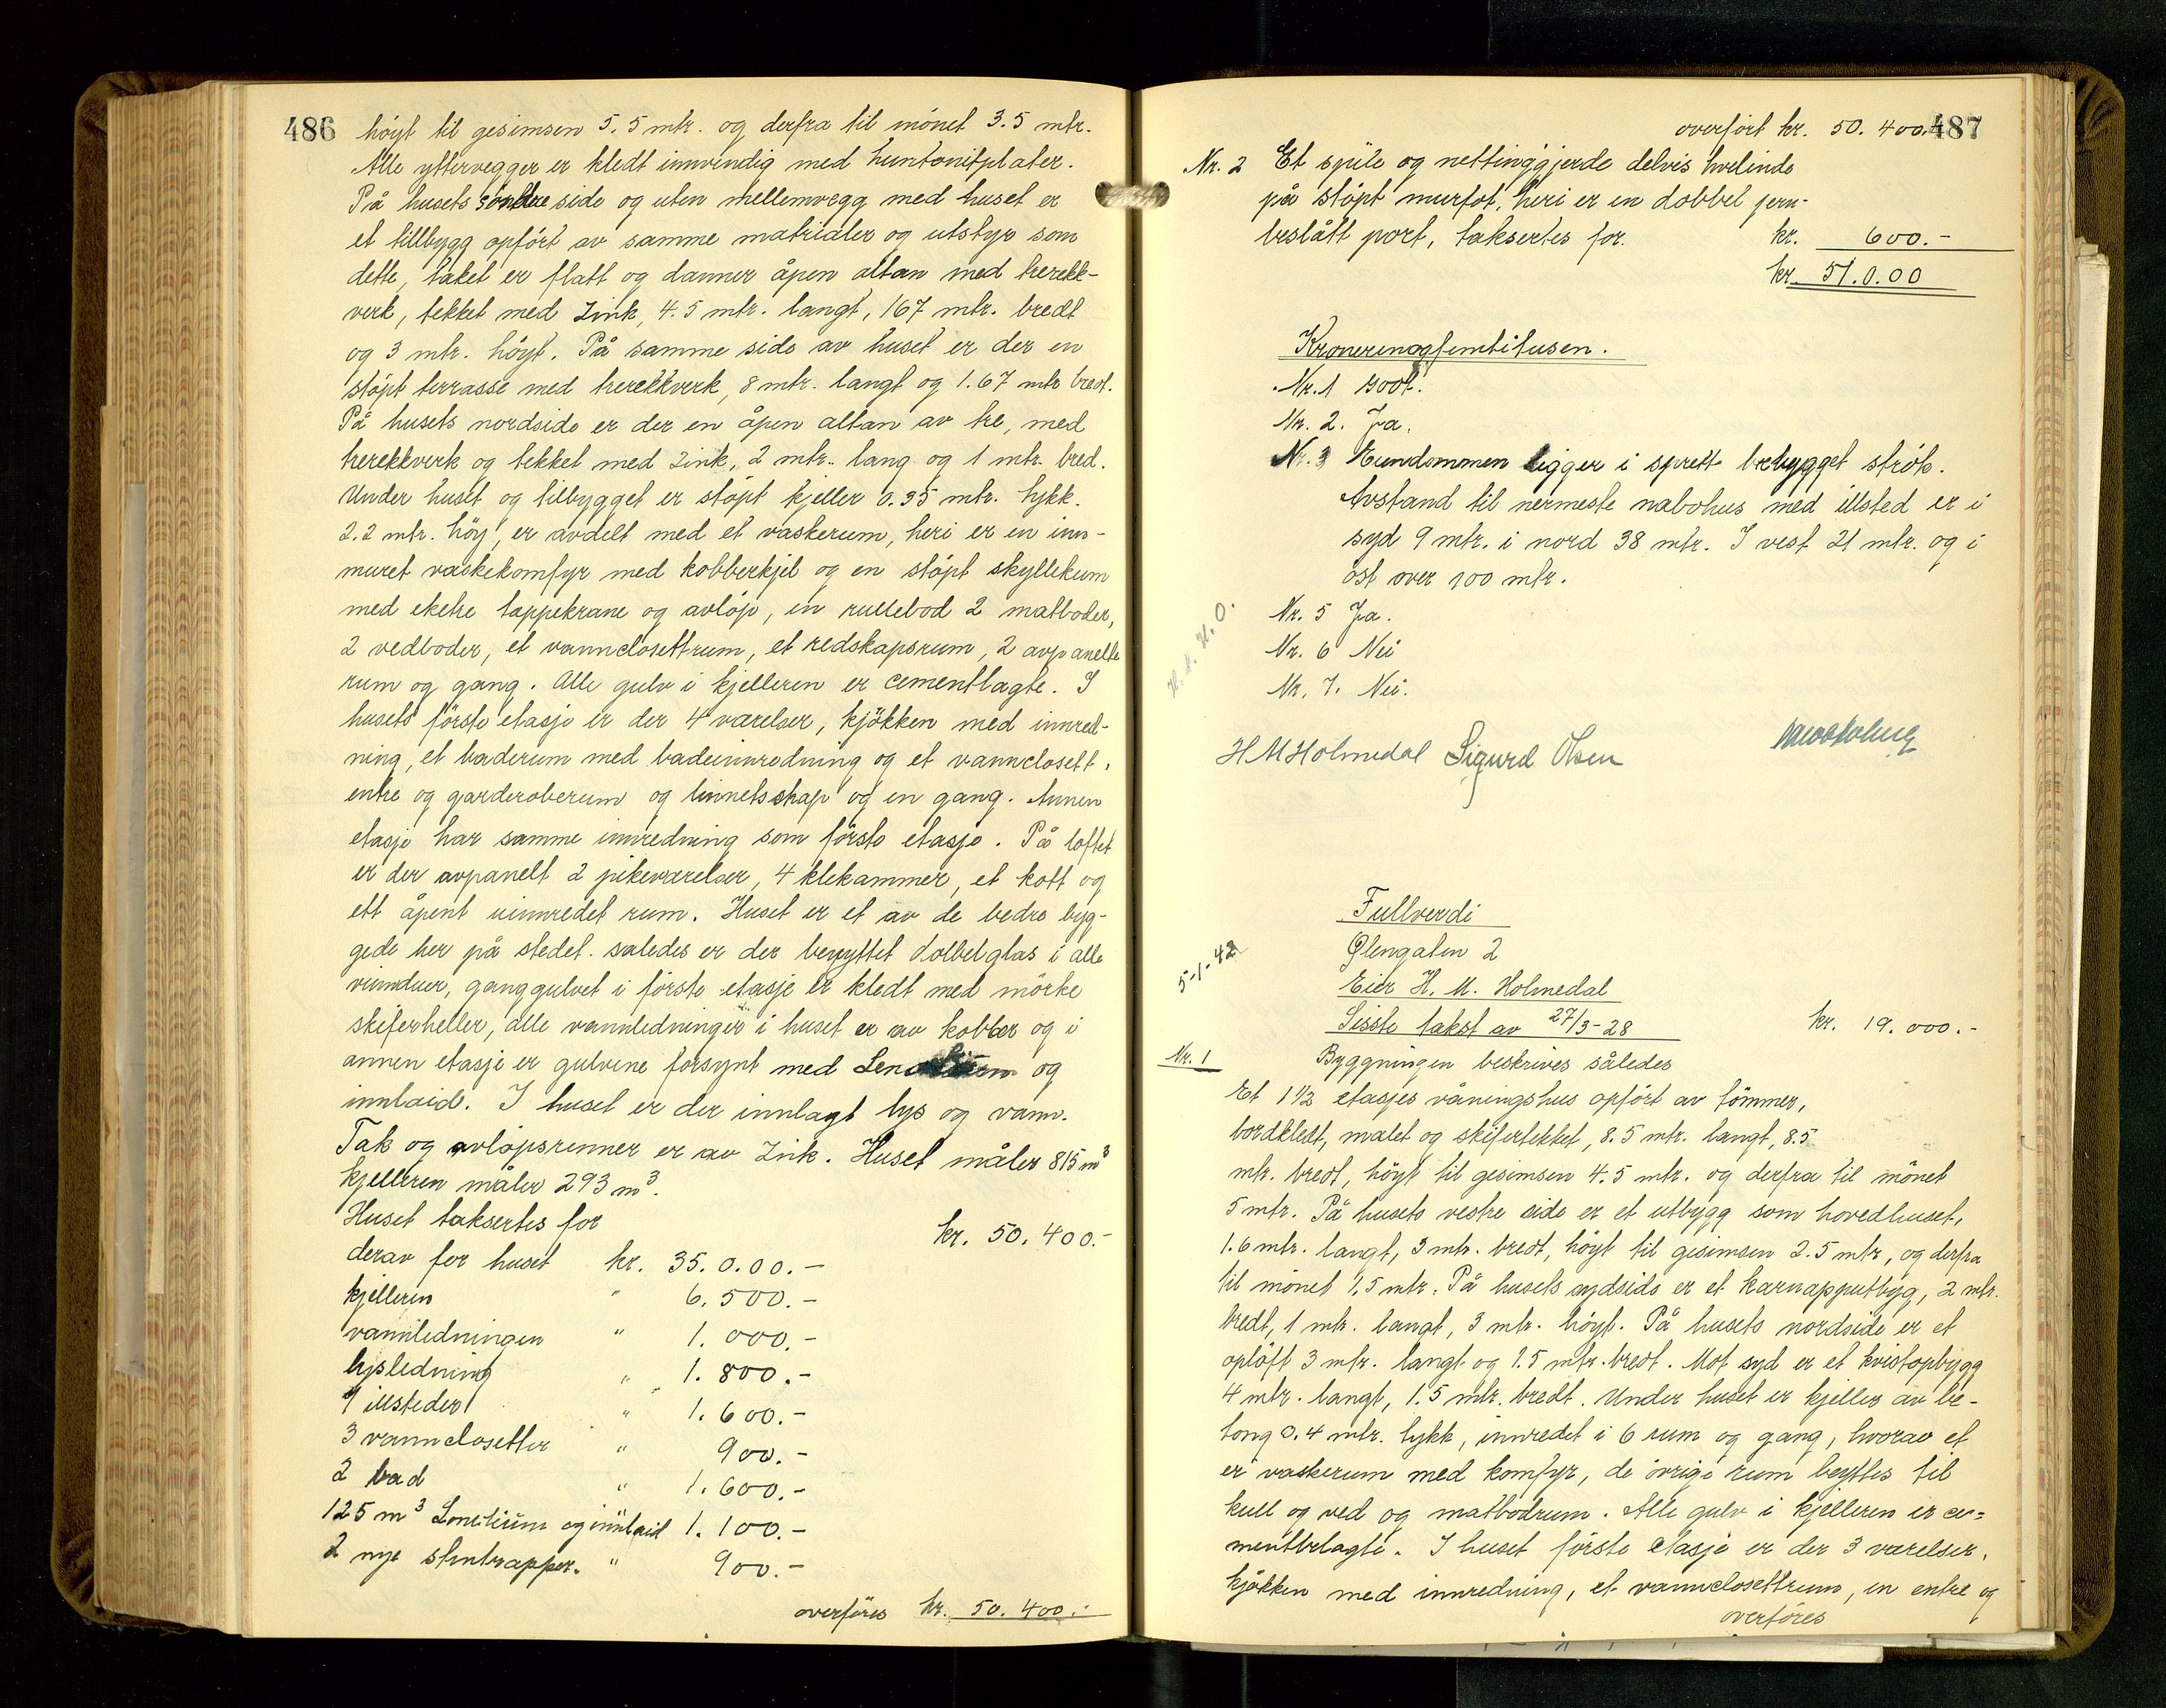 486
höyt til gesimsen 5.5 mtr. og derfra til mönet 3.5 mtr.
Alle yttervegger er kledt innvendig med huntonitplater.
På husets söndre side og uten mellemvegg med huset er
et tillbygg opfört av samme matrialer og utstyr som
dette, taket er flatt og danner åpen altan med trerekk-
verk, tekket med Zink, 4.5 mtr. langt, 167 mtr. bredt
og 3 mtr. höyt. På samme side av huset er der en
stöpt terrasse med trerekkverk, 8 mtr. langt og 1.67 mtr bredt.
På husets nordside er der en åpen altan av tre, med
trerekkverk og tekket med Zink, 2 mtr. lang og 1 mtr. bred.
Under huset og tilbygget er stöpt kjeller 0.35 mtr. tykk.
2.2 mtr. höy, er avdelt med et vaskerum, heri er en inn-
muret vaskekomfyr med kobberkjel og en stöpt skyllekum
med ekstre tappekrane og avlöp, en rullebod 2 matboder,
2 vedboder, et vannclosettrum, et redskapsrum, 2 avpanelte
rum og gang. Alle gulv i kjelleren er cementlagte. I
husets förste etasje er der 4 værelser, kjökken med innred-
ning, et baderum med badeinnredning og et vannclosett,
entre og garderoberum og linnetsskap og en gang. Annen
etasje har samme innredning som förste etasje. På loftet
er der avpanelt 2 pikeværelser, 4 klekammer, et kott og
ett åpent uinnredet rum. Huset er et av de bedre byg-
gede her på stedet. således er der benyttet dobbelglas i alle
vinduer, ganggulvet i förste etasje er kledt med mörke
skiferheller, alle vannledninger i huset er av kobber og i
annen etasje er gulvene forsynt med og
innlaid. I huset er der innlagt lys og vann.
Tak og avlöpsrenner er av Zink. Huset måler 815 m³
kjelleren måler 293 m³.
Huset taksertes for kr. 50.400.-
derav for huset kr. 35.0.00.-
kjelleren " 6.500.-
vannledningen " 1.000.-
lysledning " 1.800.-
9 illsteder " 1.600.-
3 vannclosetter " 900.-
2 bad " 1.600.-
125 m³ og innlaid 1.100.-
2 nye stentrapper. " 900.-
overföres kr. 50.400.-
487
overfört kr. 50.400.-
Nr. 2 Et spile og nettinggjerde delvis hvelinde
på stöpt murfot, heri er en dobbel jern-
beslått port, taksertes for. kr. 600.-
kr. 51.0.00
Kronerenogfemtitusen.
Nr. 1 godt.
Nr. 2. Ja.
Nr. 3 Eiendommen ligger i sprett bebygget strök.
Avstand til nermeste nabohus med illsted er i
syd 9 mtr. i nord 38 mtr. I vest 21 mtr. og i
öst over 100 mtr.
Nr. 5 Ja.
Nr. 6 Nei
Nr. 7. Nei.
H M Holmedal Sigurd Olsen
Fullverdi
5-1-42
Glengaten 2
Eier H. M. Holmedal
Sisste takst av 27/3-28 kr. 19.000.-
Nr. 1 Byggningen beskrives således
Et 1½ etasjes våningshus opfört av tömmer,
bordkledt, malet og skifertekket, 8.5 mtr. langt, 8.5
mtr. bredt, höyt til gesimsen 4.5 mtr. og derfra til mönet
5 mtr. På husets vestre side er et utbygg som hovedhuset,
1.6 mtr. langt, 3 mtr. bredt, höyt til gesimsen 2.5 mtr, og derfra
til mönet 1.5 mtr. På husets sydside er et karnapputbyg, 2 mtr.
bredt, 1 mtr. langt, 3 mtr. höyt. På husets nordside er et
oplöft 3 mtr. langt og 1.5 mtr. bredt. Mot syd er et kvistopbygg
4 mtr. langt, 1.5 mtr. bredt. Under huset er kjeller av be-
tong 0.4 mtr. tykk, innredet i 6 rum og gang, hvorav et
er vaskerum med komfyr, de övrige rum beyttes til
kull og ved og matbodrum. Alle gulv i kjelleren er ce-
mentbelagte. I huset förste etasje er der 3 værelser,
kjökken med innredning, et vannclosettrum, en entre og
overföres